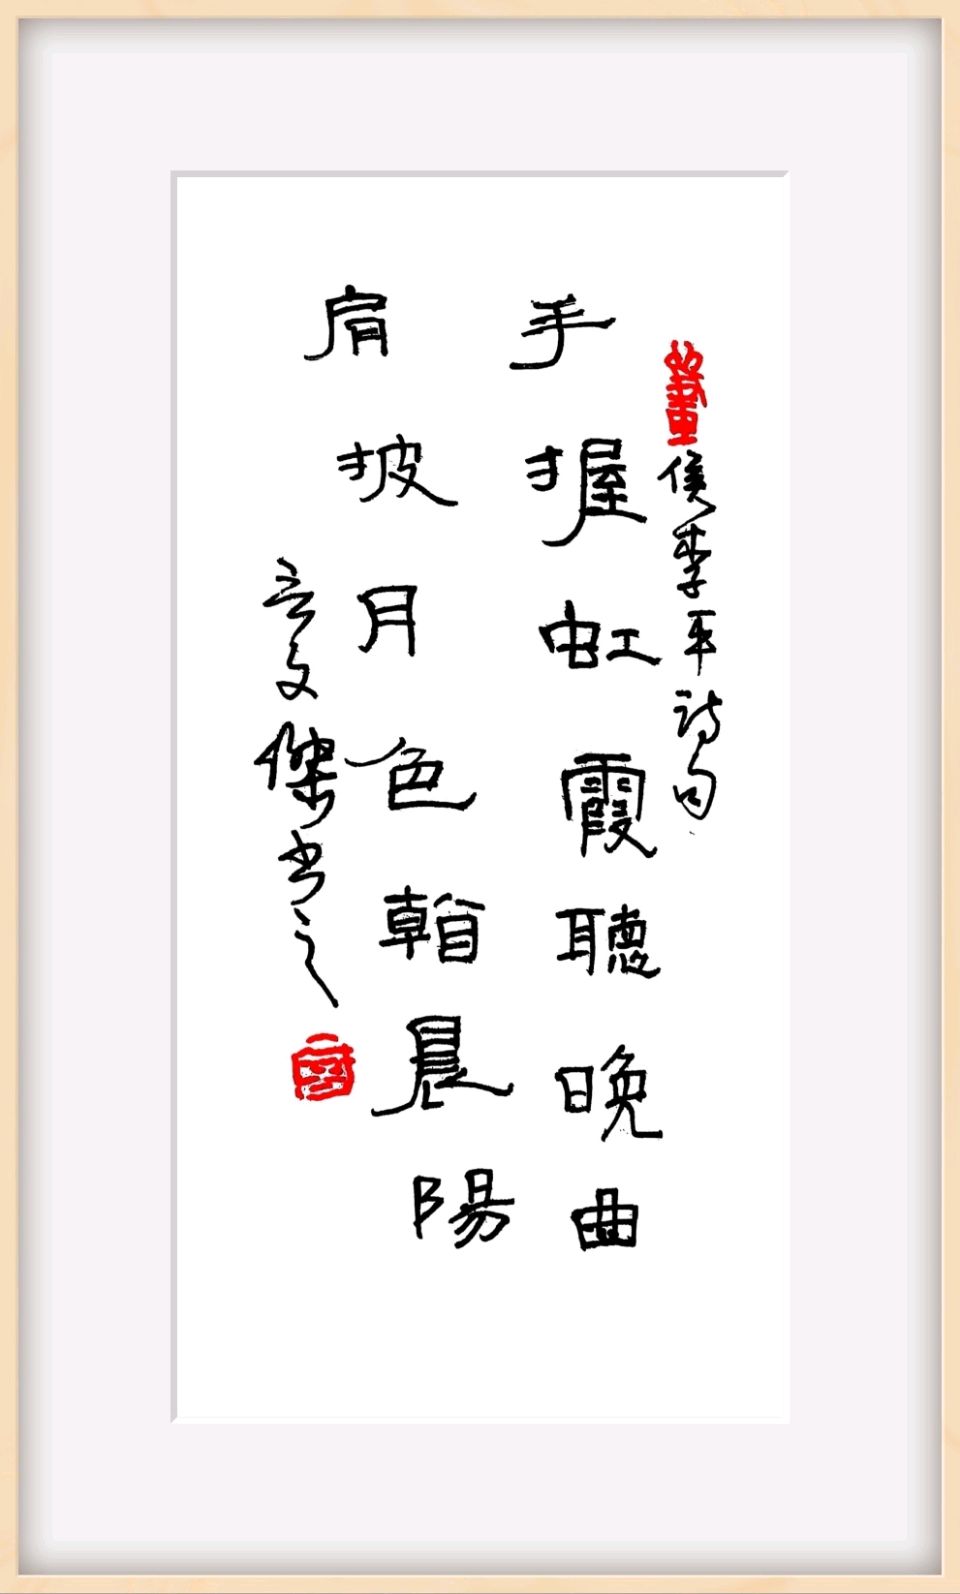 侯季平詩句
手握虹霞聽晚曲
肩披月色朝晨陽
文傑书之